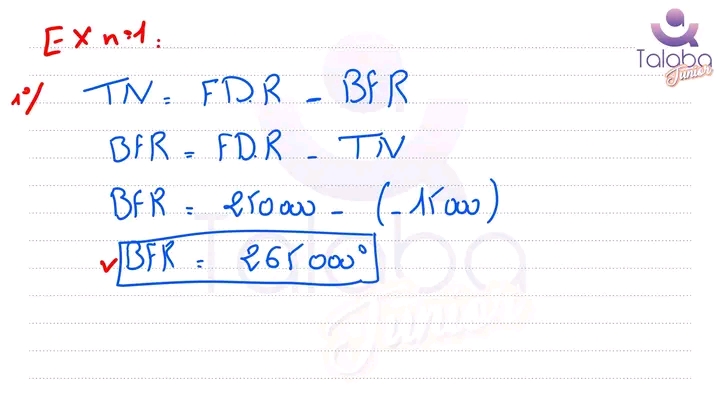 EX n°1:
Taloba
Junior
1°/ TN = FDR - BFR
BFR = FDR - TN
BFR = 250000 - (-15000)
BFR = 265000
Taloba
Junior